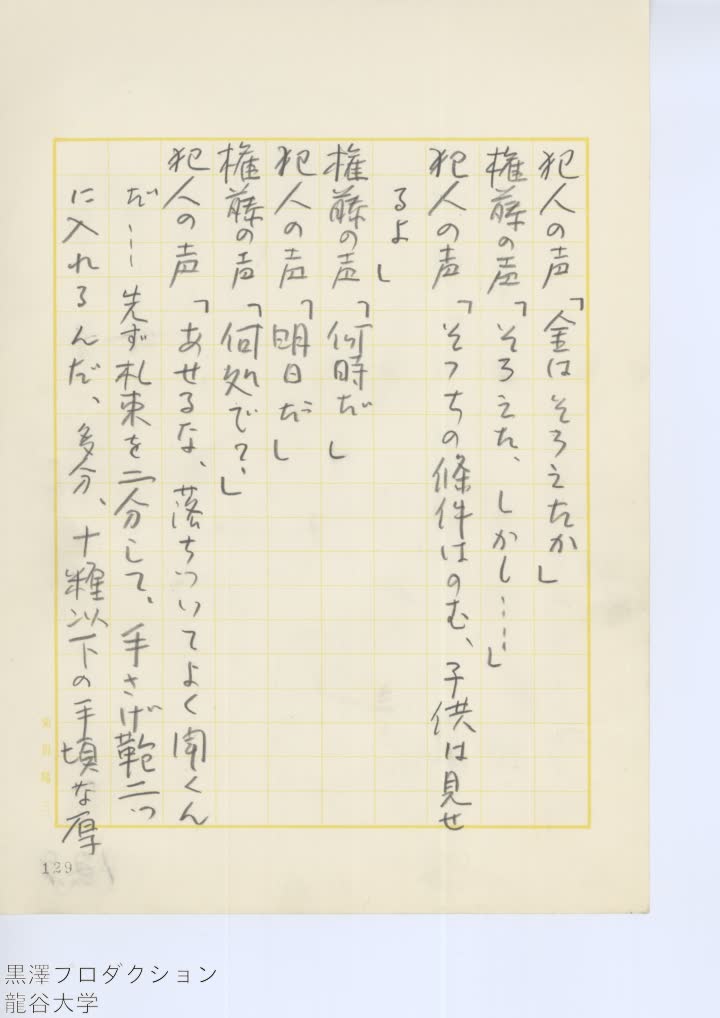 犯人の声「金はそろえたか」
権藤の声「そろえた、しかし……」
犯人の声「そっちの條件はのむ、子供は見せ
るよ」
権藤の声「何時だ」
犯人の声「明日だ」
権藤の声「何処で?」
犯人の声「あせるな、落ちついてよく聞くん
だ……先ず札束を二分して、手さげ鞄二つ
に入れるんだ、多分、十糎以下の手頃な厚
129
黒澤プロダクション
龍谷大学